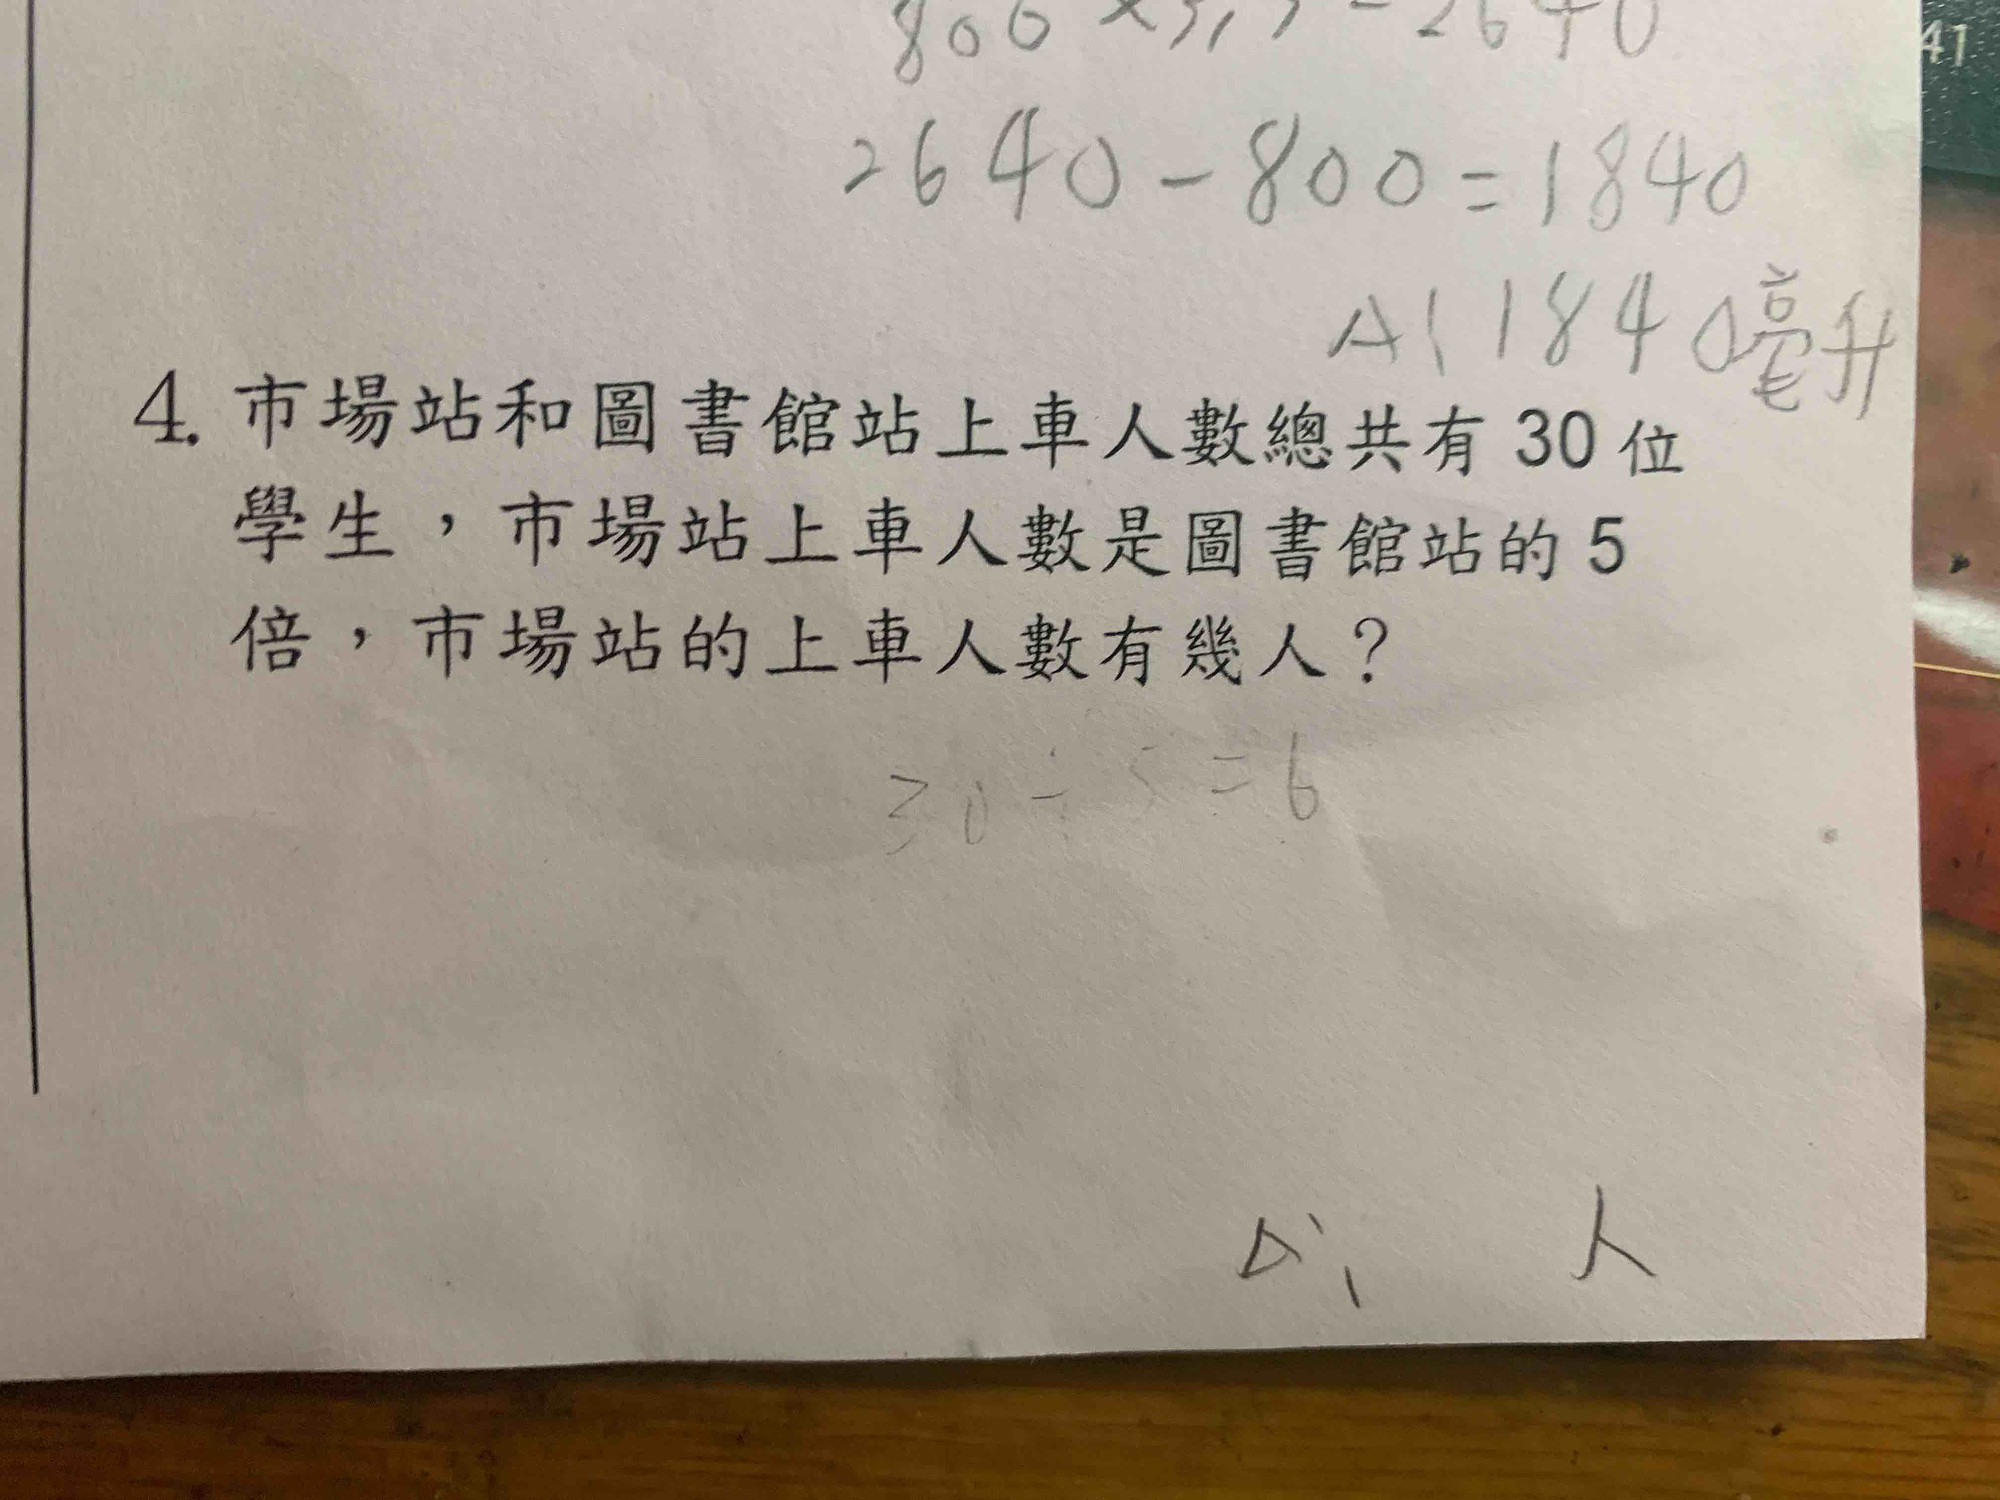 41
800 × 3.3 = 2640
2640 - 800 = 1840
A: 1840毫升
4. 市場站和圖書館站上車人數總共有 30 位
學生，市場站上車人數是圖書館站的 5
倍，市場站的上車人數有幾人？
30 ÷ 5 = 6
A: 人